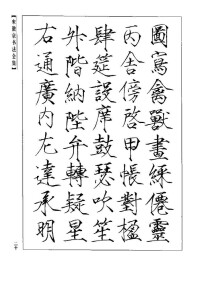 圖寫禽獸畫綵僊靈
丙舍傍啓甲帳對楹
肆筵設席鼓瑟吹笙
升階納陛弁轉疑星
右通廣內左達承明
【宋徽宗书法全集】